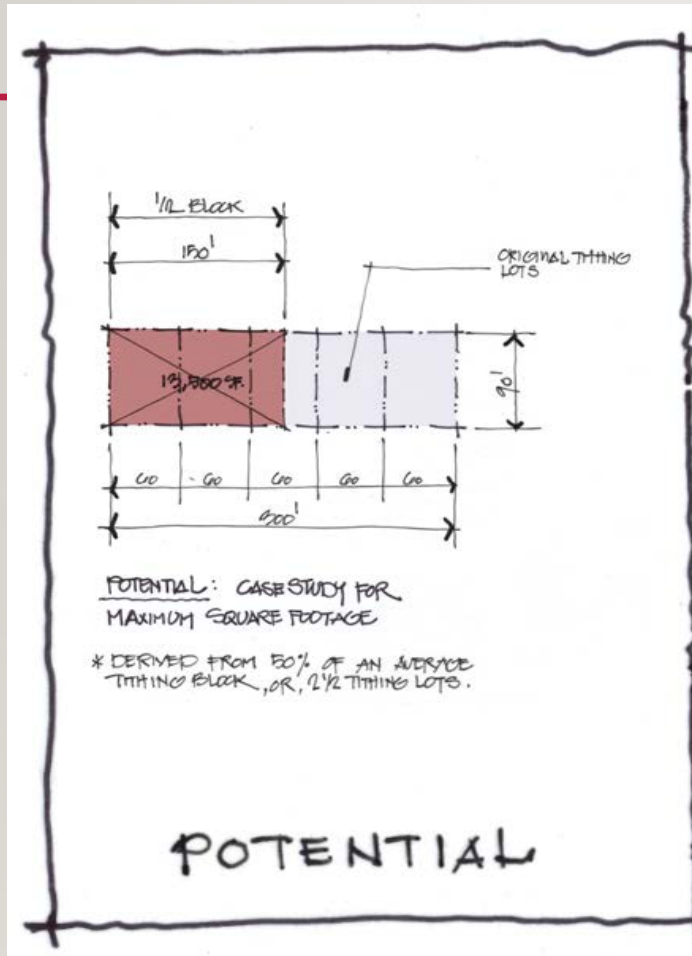 1/2 BLOCK
150'
ORIGINAL TITHING
LOTS
13,500 SF.
90'
60 60 60 60 60
300'
POTENTIAL: CASE STUDY FOR
MAXIMUM SQUARE FOOTAGE
* DERIVED FROM 50% OF AN AVERAGE
TITHING BLOCK, OR, 2 1/2 TITHING LOTS.
POTENTIAL